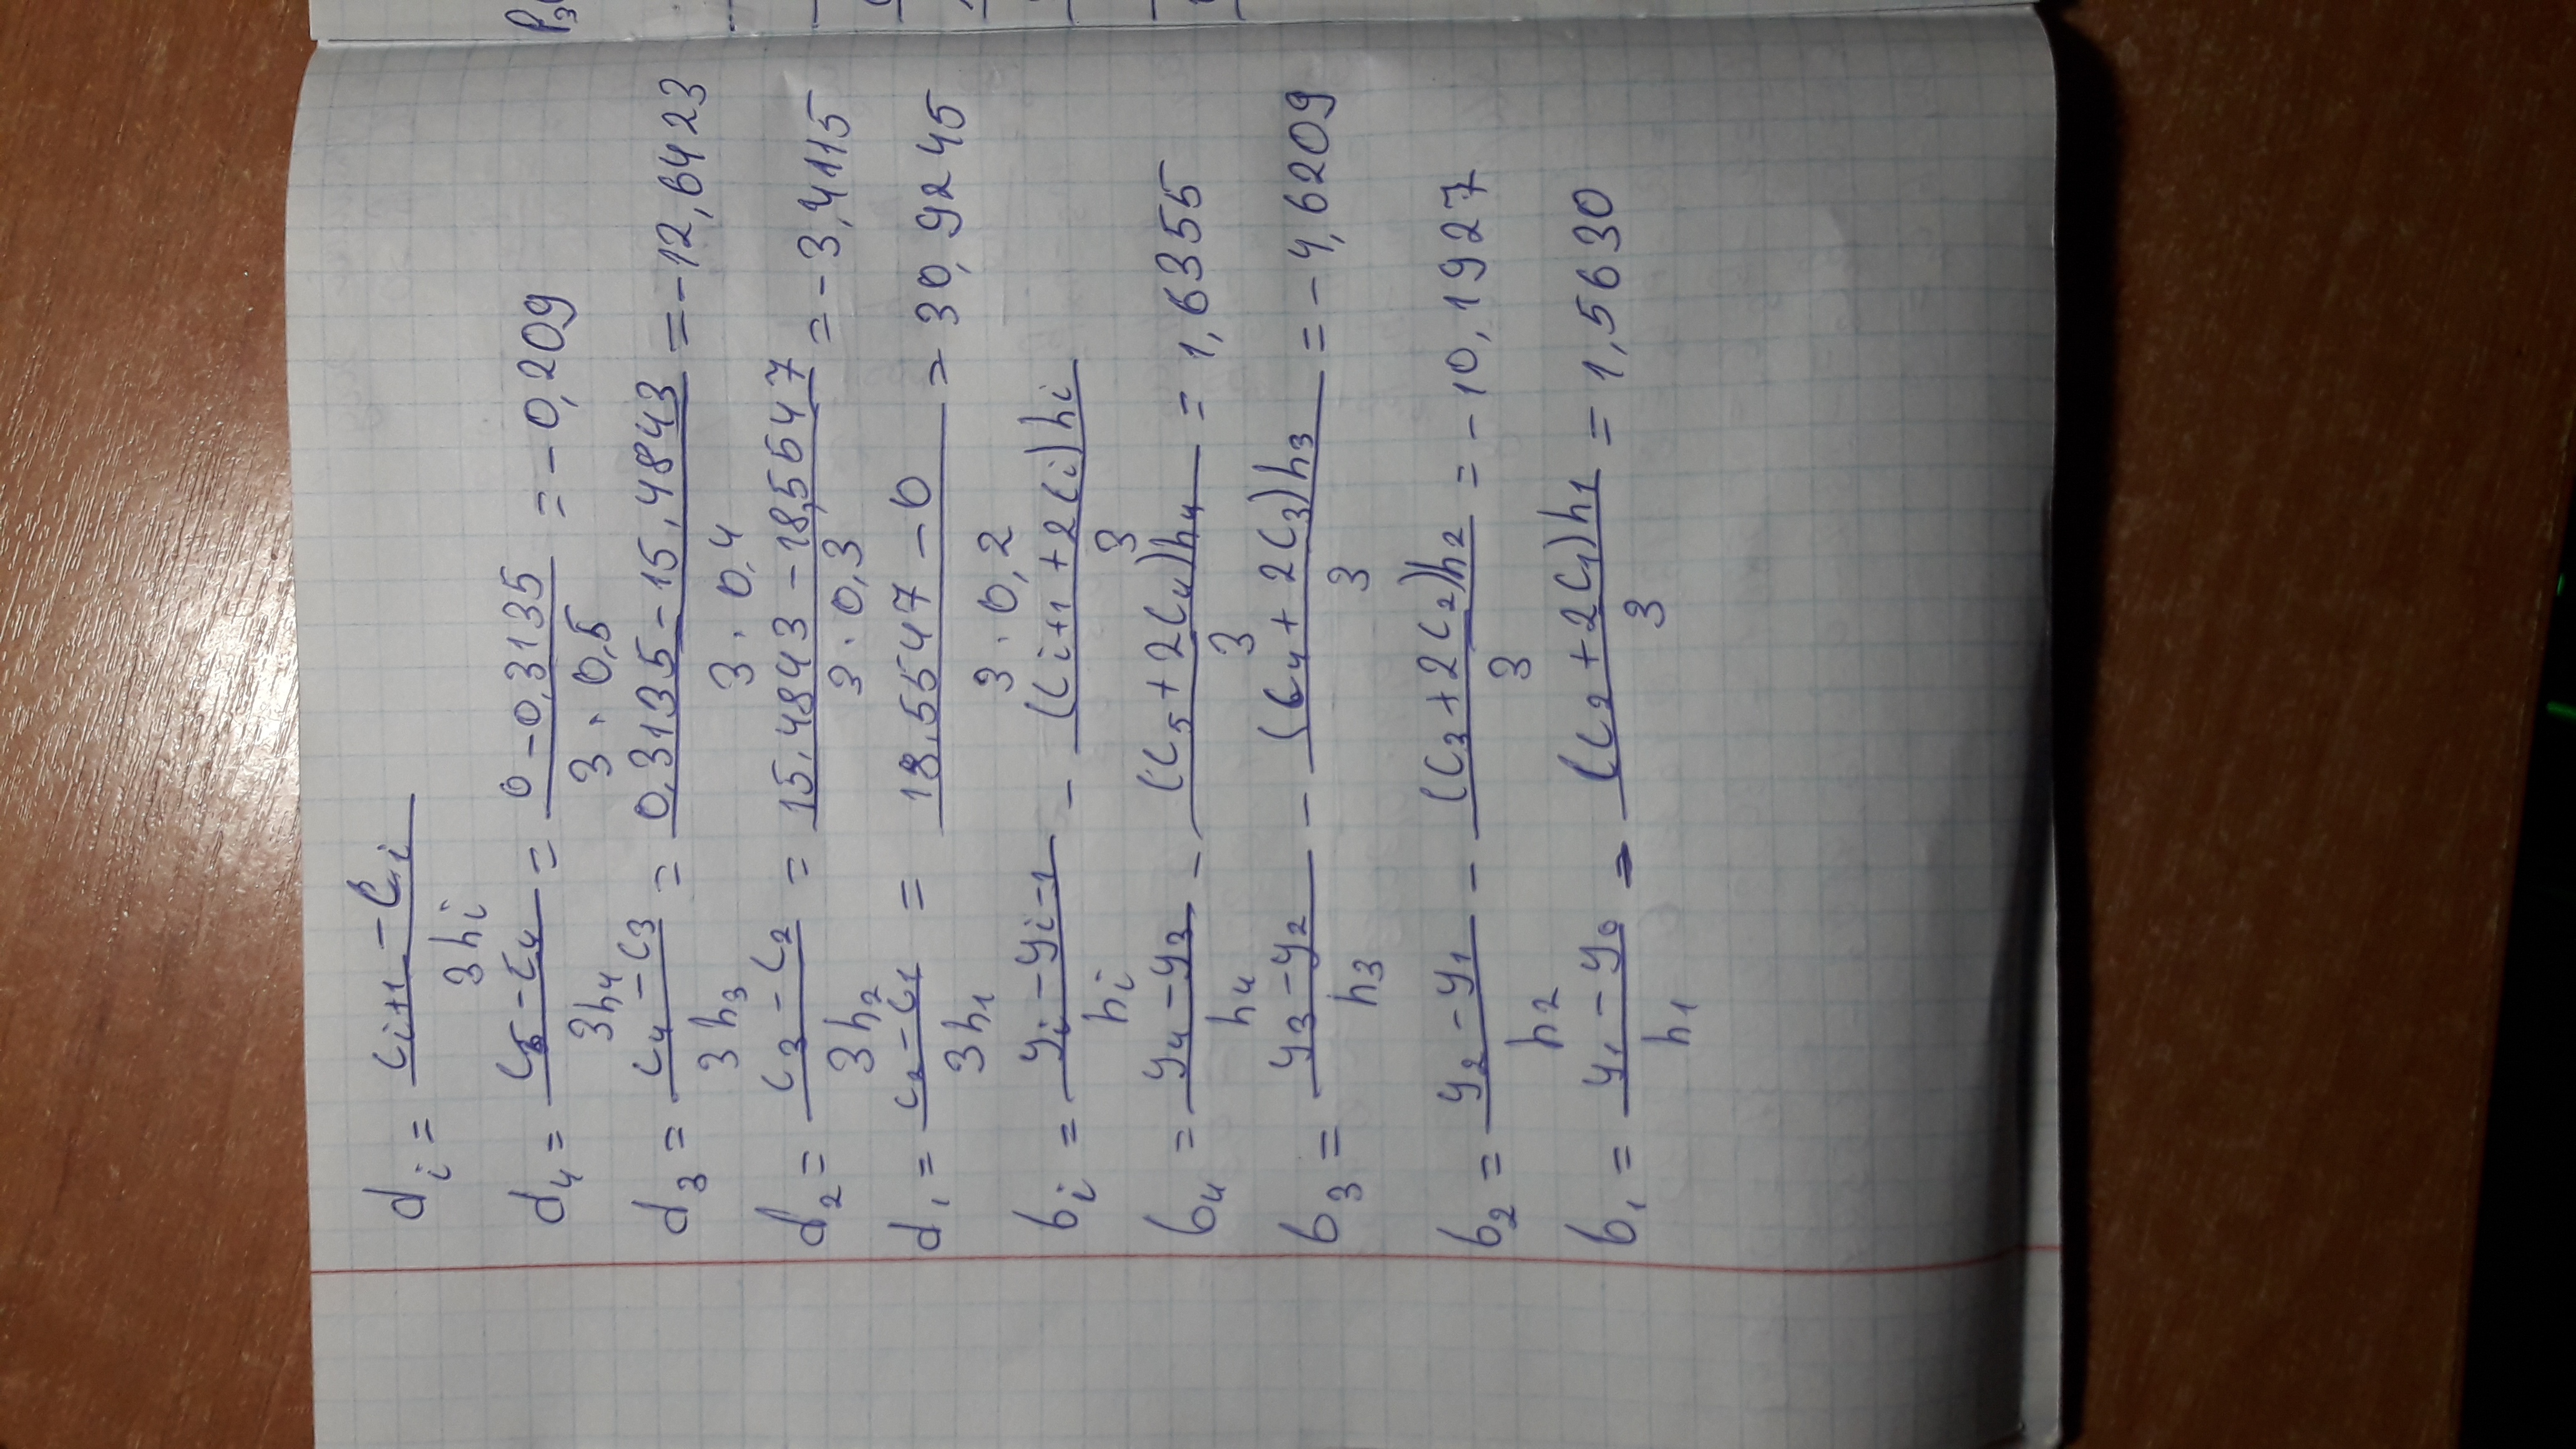 d_i = (c_{i+1} - c_i) / 3h_i
d_4 = (c_5 - c_4) / 3h_4 = (0 - 0,3135) / (3 · 0,5) = -0,209
d_3 = (c_4 - c_3) / 3h_3 = (0,3135 - 15,4843) / (3 · 0,4) = -12,6423
d_2 = (c_3 - c_2) / 3h_2 = (15,4843 - 18,5547) / (3 · 0,3) = -3,4115
d_1 = (c_2 - c_1) / 3h_1 = (18,5547 - 0) / (3 · 0,2) = 30,9245
b_i = (y_i - y_{i-1}) / h_i - (c_{i+1} + 2c_i)h_i / 3
b_4 = (y_4 - y_3) / h_4 - (c_5 + 2c_4)h_4 / 3 = 1,6355
b_3 = (y_3 - y_2) / h_3 - (c_4 + 2c_3)h_3 / 3 = -4,6209
b_2 = (y_2 - y_1) / h_2 - (c_3 + 2c_2)h_2 / 3 = -10,1927
b_1 = (y_1 - y_0) / h_1 - (c_2 + 2c_1)h_1 / 3 = 1,5630